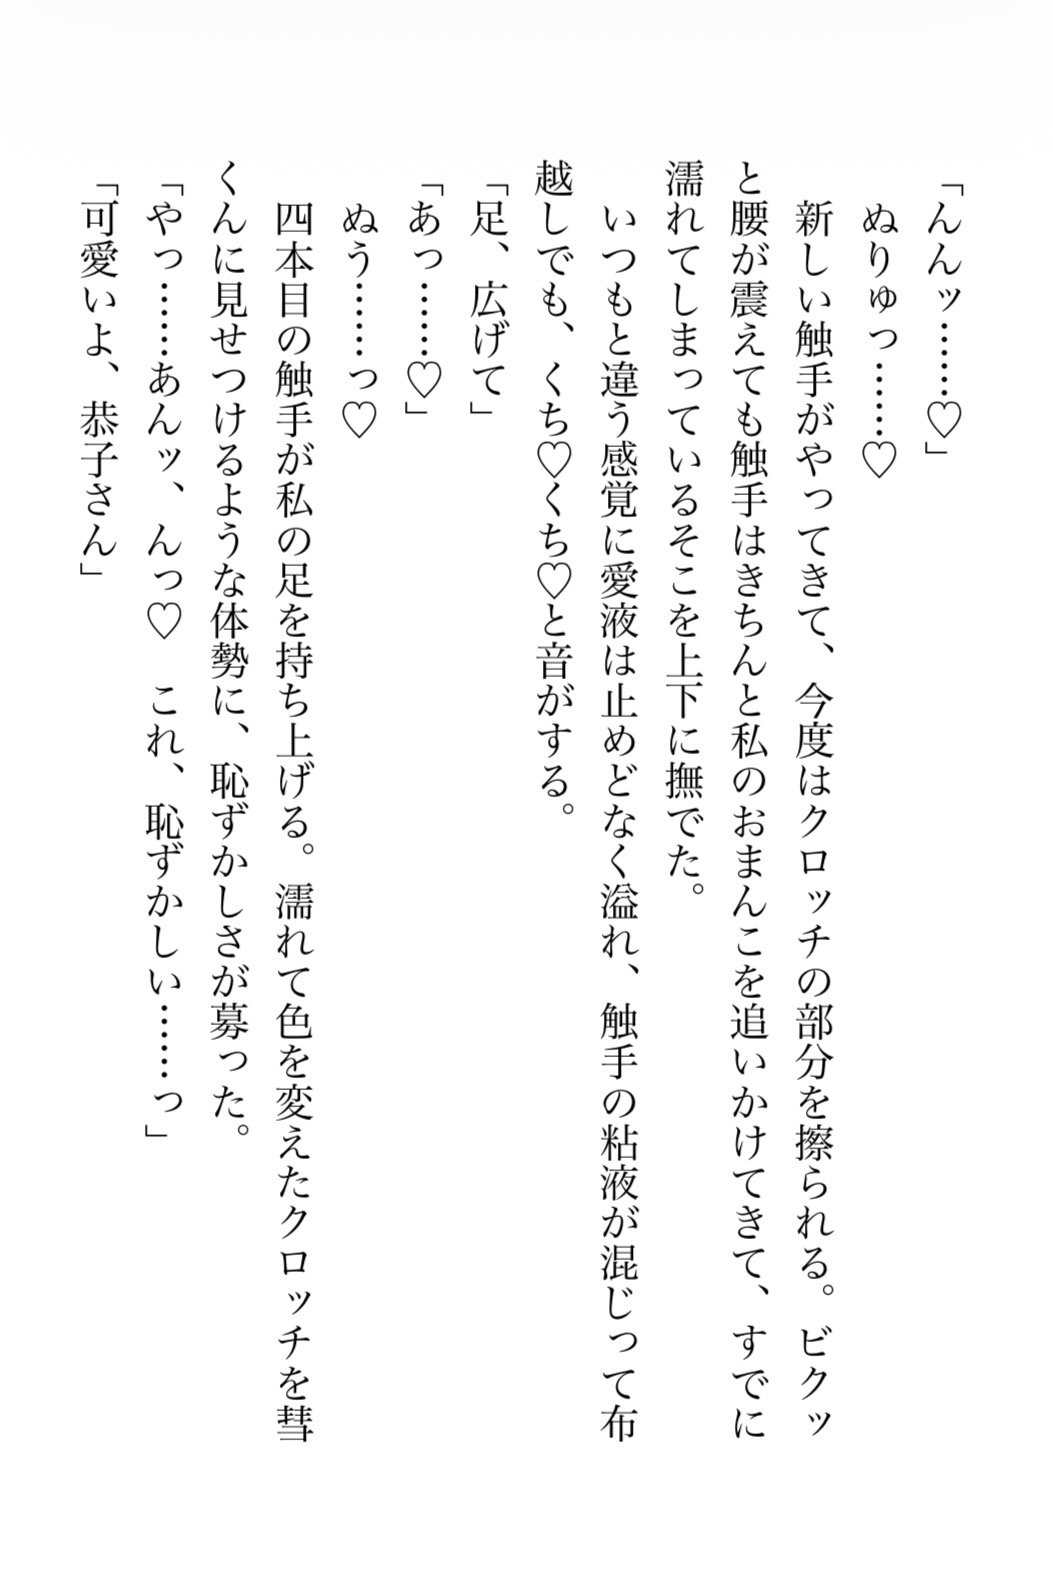 「んんッ……♡」
　ぬりゅっ……♡
　新しい触手がやってきて、今度はクロッチの部分を擦られる。ビクッ
と腰が震えても触手はきちんと私のおまんこを追いかけてきて、すでに
濡れてしまっているそこを上下に撫でた。
　いつもと違う感覚に愛液は止めどなく溢れ、触手の粘液が混じって布
越しでも、くち♡くち♡と音がする。
「足、広げて」
「あっ……♡」
　ぬう……っ♡
　四本目の触手が私の足を持ち上げる。濡れて色を変えたクロッチを彗
くんに見せつけるような体勢に、恥ずかしさが募った。
「やっ……あんッ、んっ♡　これ、恥ずかしい……っ」
「可愛いよ、恭子さん」